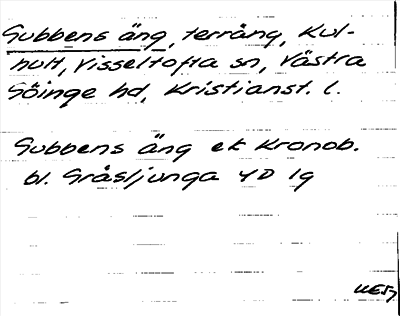 Gubbens äng, terräng, Kul-
hult, Visseltofta sn, Västra
Göinge hd, Kristianst. l.
Gubbens äng ek Kronob.
bl. Gråsljunga 4D 1g